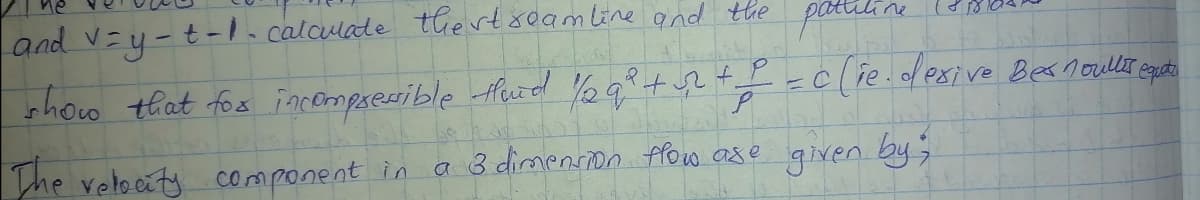 and v=y-t-1. calculate the streamline and the pathline
show that for incompressible fluid ½q² + Ω + P/ρ = c (ie. derive Bernoullis equato
The velocity component in a 3 dimension flow are given by;